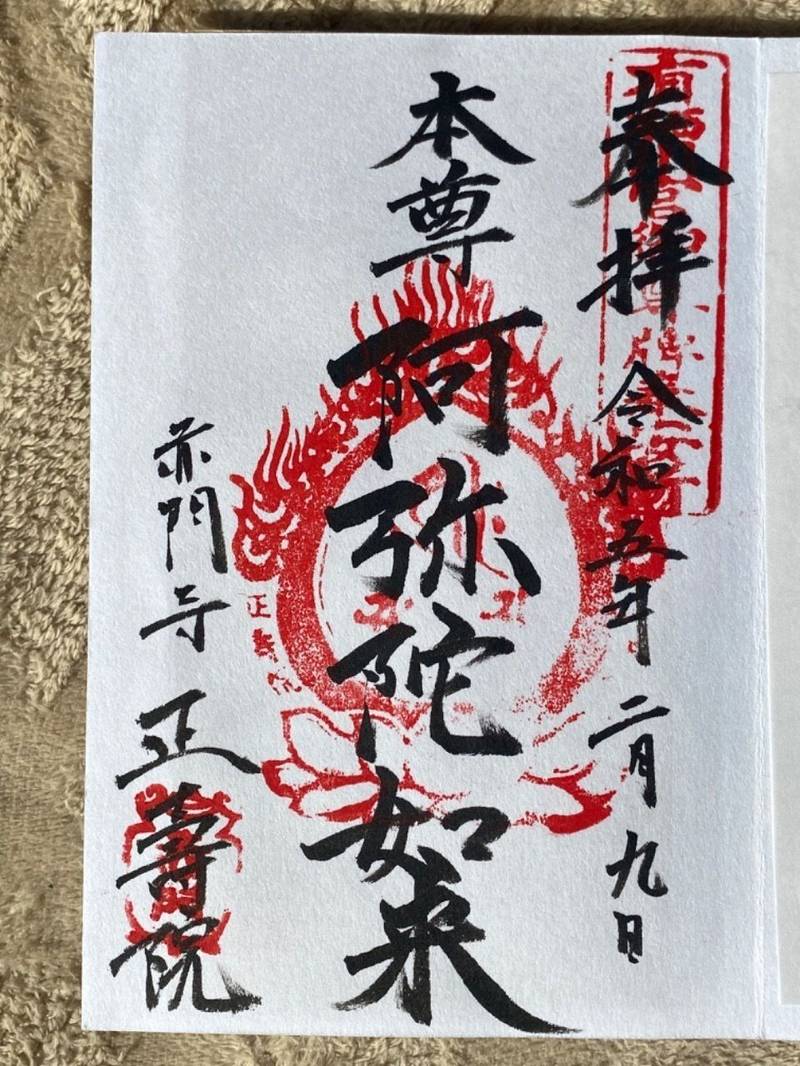 奉拝 令和五年 二月九日
本尊 阿弥陀如来
赤門寺 正壽院
正壽院